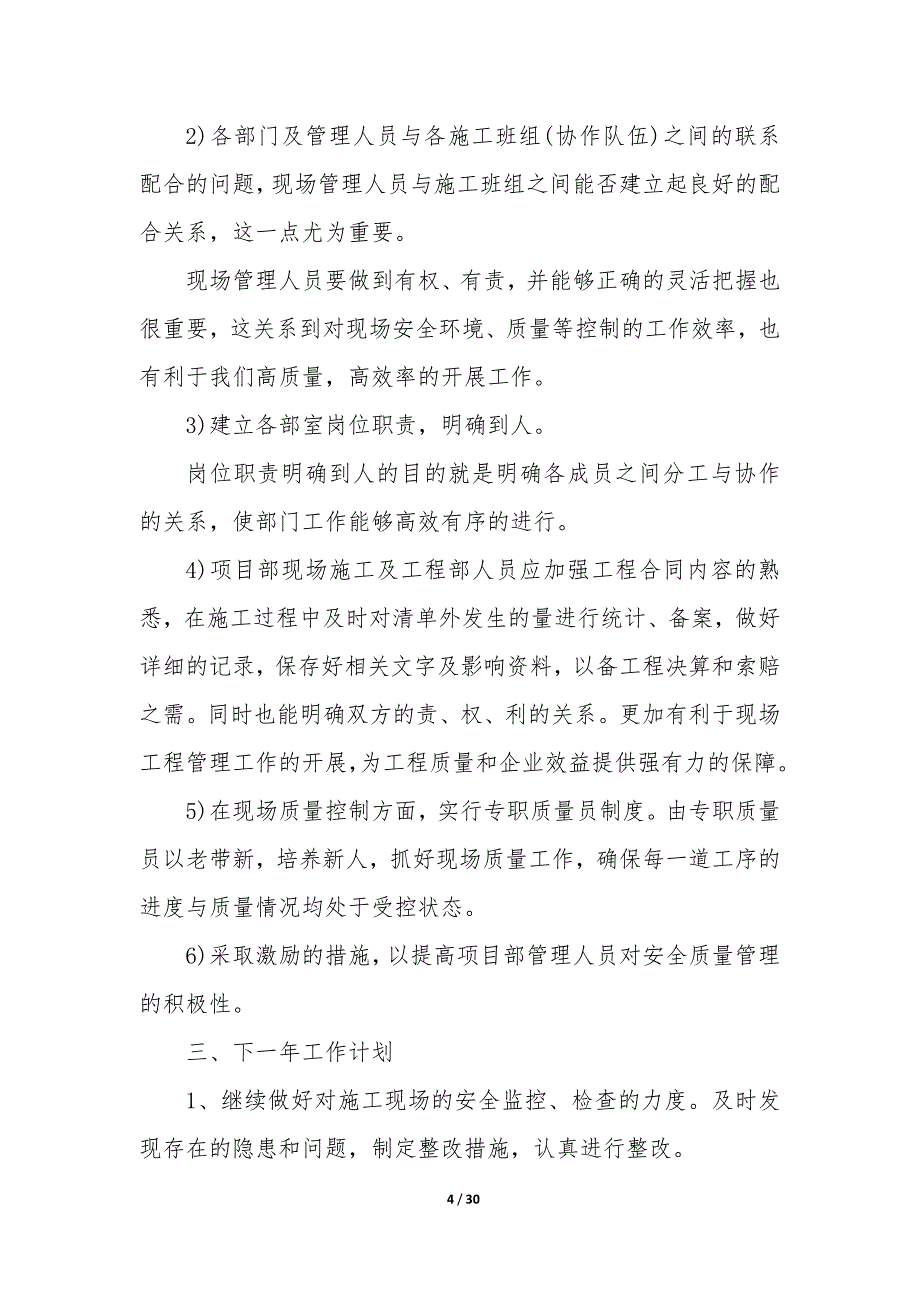 2)各部门及管理人员与各施工班组(协作队伍)之间的联系
配合的问题,现场管理人员与施工班组之间能否建立起良好的配
合关系，这一点尤为重要。
现场管理人员要做到有权、有责，并能够正确的灵活把握也
很重要，这关系到对现场安全环境、质量等控制的工作效率，也
有利于我们高质量，高效率的开展工作。
3)建立各部室岗位职责，明确到人。
岗位职责明确到人的目的就是明确各成员之间分工与协作
的关系，使部门工作能够高效有序的进行。
4)项目部现场施工及工程部人员应加强工程合同内容的熟
悉，在施工过程中及时对清单外发生的量进行统计、备案，做好
详细的记录，保存好相关文字及影响资料，以备工程决算和索赔
之需。同时也能明确双方的责、权、利的关系。更加有利于现场
工程管理工作的开展,为工程质量和企业效益提供强有力的保障。
5)在现场质量控制方面，实行专职质量员制度。由专职质量
员以老带新，培养新人，抓好现场质量工作，确保每一道工序的
进度与质量情况均处于受控状态。
6)采取激励的措施,以提高项目部管理人员对安全质量管理
的积极性。
三、下一年工作计划
1、继续做好对施工现场的安全监控、检查的力度。及时发
现存在的隐患和问题，制定整改措施，认真进行整改。
4 / 30